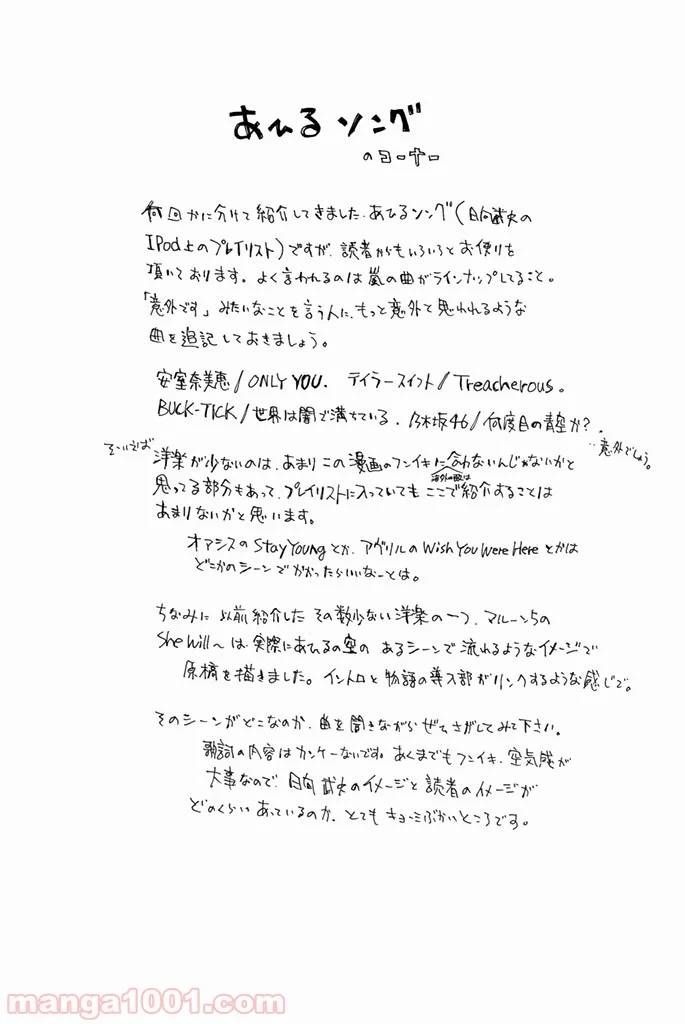 あひるソング
のコーナー
何回かに分けて紹介してきました、あひるソング(日向武史の
IPod上のプレイリスト)ですが、読者からもいろいろとお便りを
頂いております。よく言われるのは嵐の曲がラインナップしてること。
「意外です」みたいなことを言う人に、もっと意外と思われるような
曲を追記しておきましょう。
安室奈美恵/ONLY YOU. テイラースイフト/Treacherous。
BUCK-TICK/世界は闇で満ちている、乃木坂46/何度目の青空か?.
…意外でしょう。
そーいえば
洋楽が少ないのは、あまりこの漫画のフンイキに合わないんじゃないかと
思ってる部分もあって、プレイリストに入っていても ここで紹介することは
あまりないかと思います。
オアシスのStay Youngとか、アヴリルのWish You Were Hereとかは
どこかのシーンでかかったらいいなーとは。
ちなみに 以前紹介した その数少ない洋楽の一つ、マルーン5の
She Will〜は、実際にあひるの空の あるシーンで流れるようなイメージで
原稿を描きました。イントロと物語の導入部がリンクするような感じで。
そのシーンがどこなのか、曲を聞きながらぜひさがしてみて下さい。
歌詞の内容はカンケーないです。あくまでもフンイキ、空気感が
大事なので、日向武史のイメージと読者のイメージが
どのくらいあっているのか、とてもキョーミぶかいところです。
manga1001.com